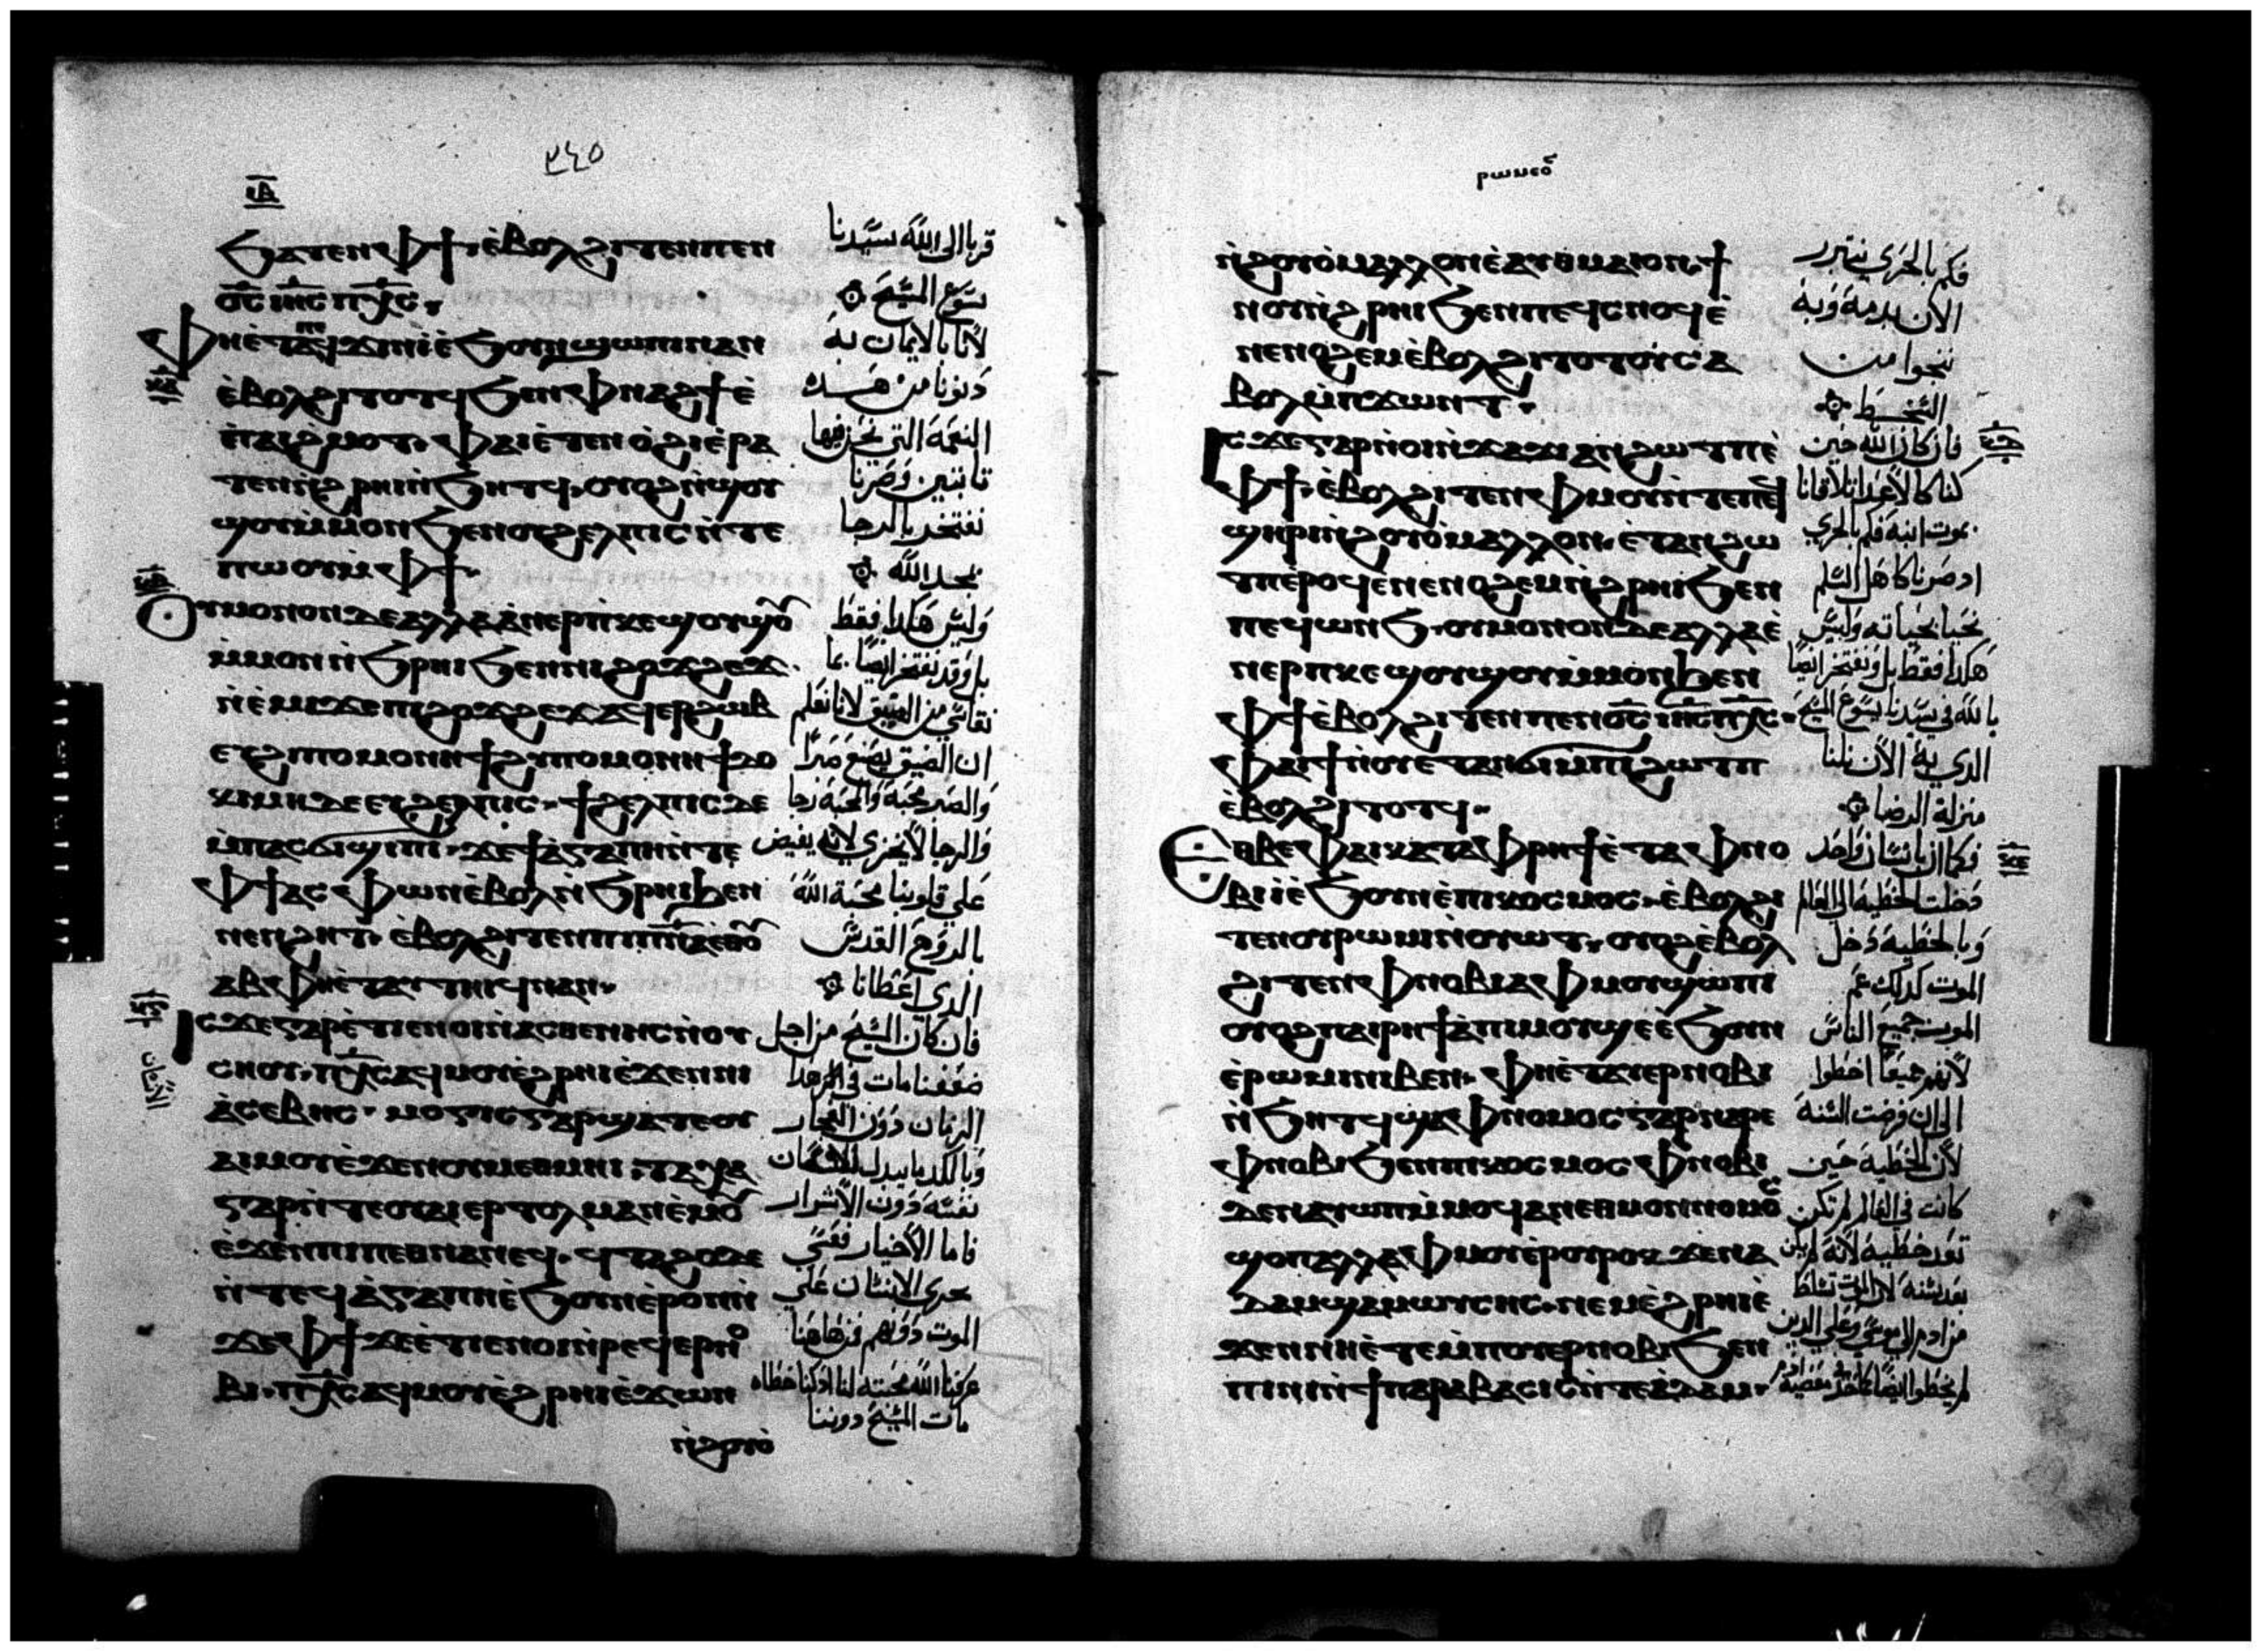 ٢٤٥
ϧⲁⲧⲉⲛ ⲫϯ ⲉ̀ⲃⲟⲗϩⲓⲧⲉⲛ ⲡⲉⲛ
ⲟ̅ⲥ̅ ⲓⲏ̅ⲥ̅ ⲡⲭ̅ⲥ̅
ⲉ̀ⲃⲟⲗϩⲓⲧⲟⲧϥ ϧⲉⲛ ⲫⲛⲁϩϯ ⲉ̀
ⲡⲁⲓϩ̀ⲙⲟⲧ ⲫⲁⲓ ⲉ̀ⲧⲉⲛⲟ̀ϩⲓ ⲉ̀ⲣⲁ
ⲧⲉⲛ ⲛ̀ϩⲣⲏⲓ ⲛ̀ϧⲏⲧϥ ⲟⲩⲟϩ ⲛ̀ϣⲟⲩ
ϣⲟⲩ ⲙ̀ⲙⲟⲛ ϧⲉⲛ ⲟⲩϩⲉⲗⲡⲓⲥ ⲛ̀ⲧⲉ
ⲡⲱⲟⲩ ⲙ̀ⲫϯ
ⲟⲩⲙⲟⲛⲟⲛ ⲇⲉ ⲁⲗⲗⲁ ⲁ̀ⲛⲉⲣⲡⲕⲉϣⲟⲩϣⲟⲩ
ⲙ̀ⲙⲟⲛ ⲛ̀ϧⲣⲏⲓ ϧⲉⲛ ⲛⲓϩⲟϫϩⲉϫ
ⲛ̀ⲉ̀ⲙⲓ ϫⲉ ⲡⲓϩⲟϫϩⲉϫ ⲁϥⲉⲣϩⲱⲃ
ⲉⲩϩⲩⲡⲟⲙⲟⲛⲏ ϯϩⲩⲡⲟⲙⲟⲛⲏ ϯⲇⲟ
ⲕⲓⲙⲏ ⲇⲉ ⲉⲩϩⲉⲗⲡⲓⲥ ϯϩⲉⲗⲡⲓⲥ ⲇⲉ
ⲙ̀ⲡⲁⲥϭⲓϣⲓⲡⲓ ϫⲉ ϯⲁ̀ⲅⲁⲡⲏ ⲛ̀ⲧⲉ
ⲫϯ ⲁⲥⲫⲱⲛ ⲉ̀ⲃⲟⲗ ⲛ̀ϧⲣⲏⲓ ϧⲉⲛ
ⲛⲉⲛϩⲏⲧ ⲉ̀ⲃⲟⲗϩⲓⲧⲉⲛ ⲡⲓⲡ̅ⲛ̅ⲁ̅ ⲉ̀ⲑⲟⲩ
ⲁⲃ ⲫⲏⲉ̀ⲧⲁⲩⲧⲏⲓϥ ⲛⲁⲛ
ⲓⲥϫⲉ ⲅⲁⲣ ⲉ̀ⲧⲓ ⲉⲛⲟⲓ ⲛ̀ⲁⲥⲑⲉⲛⲏⲥ ⲛ̀ⲟⲩ
ⲥⲏⲟⲩ ⲡⲭ̅ⲥ̅ ⲁϥⲙⲟⲩ ⲉ̀ϩⲣⲏⲓ ⲉ̀ϫⲉⲛ ⲛⲓ
ⲁ̀ⲥⲉⲃⲏⲥ ⲙⲟⲅⲓⲥ ⲅⲁⲣ ϣⲁⲧⲉ ⲟⲩ
ⲁⲓ ⲙⲟⲩ ⲉ̀ϫⲉⲛ ⲟⲩⲑⲙⲏⲓ ⲧⲁⲭⲁ
ⲅⲁⲣ ⲛ̀ⲧⲉ ⲟⲩⲁⲓ ⲉⲣⲧⲟⲗⲙⲁⲛ ⲉ̀ⲙⲟⲩ
ⲉ̀ϫⲉⲛ ⲡⲓⲡⲉⲑⲛⲁⲛⲉϥ ϥⲧⲁϩⲟ ⲇⲉ
ⲛ̀ⲧⲉϥⲁ̀ⲅⲁⲡⲏ ⲉ̀ϧⲟⲩⲛ ⲉ̀ⲣⲟⲛ ⲛ̀
ϫⲉ ⲫϯ ϫⲉ ⲉ̀ⲧⲓ ⲉⲛⲟⲓ ⲛ̀ⲣⲉϥⲉⲣⲛⲟ
ⲃⲓ ⲡⲭ̅ⲥ̅ ⲁϥⲙⲟⲩ ⲉ̀ϩⲣⲏⲓ ⲉ̀ϫⲱⲛ
ⲛ̀ϩⲟⲩⲟ̀
قربا الى الله سيدنا
يسوع المسيح
لاننا بالايمان به
دنونا من هذه
النعمة التي نحن فيها
ثابتين وصرنا
نفتخر بالرجا
بمجد الله
وليس هكذا فقط
بل وقد نفتخر ايضا بما
نقاسي من الضيق لانا نعلم
ان الضيق يصنع صبرا
والصبر محنة والمحنة رجا
والرجا لا يخزي لانه يفيض
على قلوبنا محبة الله
بالروح القدس
الذي اعطانا
فان كان المسيح من اجل
ضعفنا مات في هذا
الزمان دون الفجار
نفسه دون الاشرار
فاما الاخيار فعسى
يجري الانسان على
الموت دونهم فمن هاهنا
عرفنا الله محبته لنا اذ كنا خطاه
مات المسيح دوننا
ⲛ̀ϩⲟⲩⲟ̀ ⲙⲁⲗⲗⲟⲛ ⲉ̀ⲁⲩⲑⲙⲁⲓⲟⲛ ϯ
ⲛⲟⲩ ⲛ̀ϩⲣⲏⲓ ϧⲉⲛ ⲡⲉϥⲥⲛⲟϥ ⲉ̀
ⲛⲉⲛⲟϩⲉⲙ ⲉ̀ⲃⲟⲗϩⲓⲧⲟⲧϥ ⲥⲁ
ⲃⲟⲗ ⲙ̀ⲡϫⲱⲛⲧ
ⲓⲥϫⲉ ⲅⲁⲣ ⲛ̀ⲟⲓ ⲛ̀ϫⲁϫⲓ ⲁⲛϩⲱⲧⲡ ⲉ̀
ⲫϯ ⲉ̀ⲃⲟⲗϩⲓⲧⲉⲛ ⲫⲙⲟⲩ ⲛ̀ⲧⲉ ⲡⲉϥ
ϣⲏⲣⲓ ⲛ̀ϩⲟⲩⲟ̀ ⲙⲁⲗⲗⲟⲛ ⲉ̀ⲧⲁⲛϩⲱ
ⲧⲡ ⲉ̀ⲣⲟϥ ⲉⲛⲉⲛⲟϩⲉⲙ ⲛ̀ϩⲣⲏⲓ ϧⲉⲛ
ⲡⲉϥⲱⲛϧ ⲟⲩⲙⲟⲛⲟⲛ ⲇⲉ ⲁⲗⲗⲁ ⲉ̀
ⲛⲉⲣⲡⲕⲉϣⲟⲩϣⲟⲩ ⲙ̀ⲙⲟⲛ ϧⲉⲛ
ⲫϯ ⲉ̀ⲃⲟⲗϩⲓⲧⲉⲛ ⲡⲉⲛⲟ̅ⲥ̅ ⲓⲏ̅ⲥ̅ ⲡⲭ̅ⲥ̅
ⲫⲁⲓ ϯⲛⲟⲩ ⲉ̀ⲧⲁⲛϭⲓ ⲙ̀ⲡⲓϩⲱⲧⲡ
ⲉ̀ⲃⲟⲗϩⲓⲧⲟⲧϥ
ⲉⲑⲃⲉ ⲫⲁⲓ ⲕⲁⲧⲁ ⲫⲣⲏϯ ⲉ̀ⲧⲁ ⲫⲛⲟ
ⲃⲓ ⲓ̀ ⲉ̀ϧⲟⲩⲛ ⲉ̀ⲡⲓⲕⲟⲥⲙⲟⲥ ⲉ̀ⲃⲟⲗϩⲓ
ⲧⲉⲛ ⲟⲩⲣⲱⲙⲓ ⲛ̀ⲟⲩⲱⲧ ⲟⲩⲟϩ ⲉ̀ⲃⲟⲗ
ϩⲓⲧⲉⲛ ⲫⲛⲟⲃⲓ ⲁ ⲫⲙⲟⲩ ϣⲱⲡⲓ
ⲟⲩⲟϩ ⲡⲁⲓⲣⲏϯ ⲁ̀ ⲡⲓⲙⲟⲩ ϣⲉ ⲉ̀ϧⲟⲩⲛ
ⲉ̀ⲣⲱⲙⲓ ⲛⲓⲃⲉⲛ ⲫⲏⲉ̀ⲧⲁⲩⲉⲣⲛⲟⲃⲓ
ⲛ̀ϧⲏⲧϥ ϣⲁ ⲫⲛⲟⲙⲟⲥ ⲅⲁⲣ ⲛⲁⲣⲉ
ⲫⲛⲟⲃⲓ ϧⲉⲛ ⲡⲓⲕⲟⲥⲙⲟⲥ ⲫⲛⲟⲃⲓ
ⲇⲉ ⲛⲁⲩⲱⲡ ⲙ̀ⲙⲟϥ ⲁⲛ ⲉⲑⲙⲟⲛ ⲛⲟⲙⲟⲥ
ϣⲟⲡ ⲁⲗⲗⲁ ⲫⲙⲟⲩ ⲉⲣⲟⲩⲣⲟ ⲓⲥϫⲉⲛ ⲁ
ⲇⲁⲙ ϣⲁ ⲙⲱⲩⲥⲏⲥ ⲛⲉⲙ ⲉ̀ϩⲣⲏⲓ ⲉ̀
ϫⲉⲛ ⲛⲏⲉ̀ⲧⲉ ⲙ̀ⲡⲟⲩⲉⲣⲛⲟⲃⲓ ϧⲉⲛ
ⲡⲓⲛⲓ ⲛ̀ϯⲡⲁⲣⲁⲃⲁⲥⲓⲥ ⲛ̀ⲧⲉ ⲁ̀ⲇⲁⲙ
فكم بالحري نتبرر
الان بدمه وبه
ننجوا من
السخط
فان كان الله حين
كنا كالاعدا تلافانا
بموت ابنه فكم بالحري
اذ صرنا كاهل السلم
نحيا بحياته وليس
هكذا فقط بل ونفتخر ايضا
بالله في سيدنا يسوع المسيح
الذي به الان نلنا
منزلة الرضا
فكما ان بانسان واحد
دخلت الخطية الى العالم
وبالخطية دخل
الموت كذلك عم
الموت جميع الناس
لانهم جميعا اخطوا
الى ان فرضت السنة
لان الخطية حين
كانت في العالم لم تكن
تعد خطية لانه لم يكن
من ادم الى موسى وعلى الذين